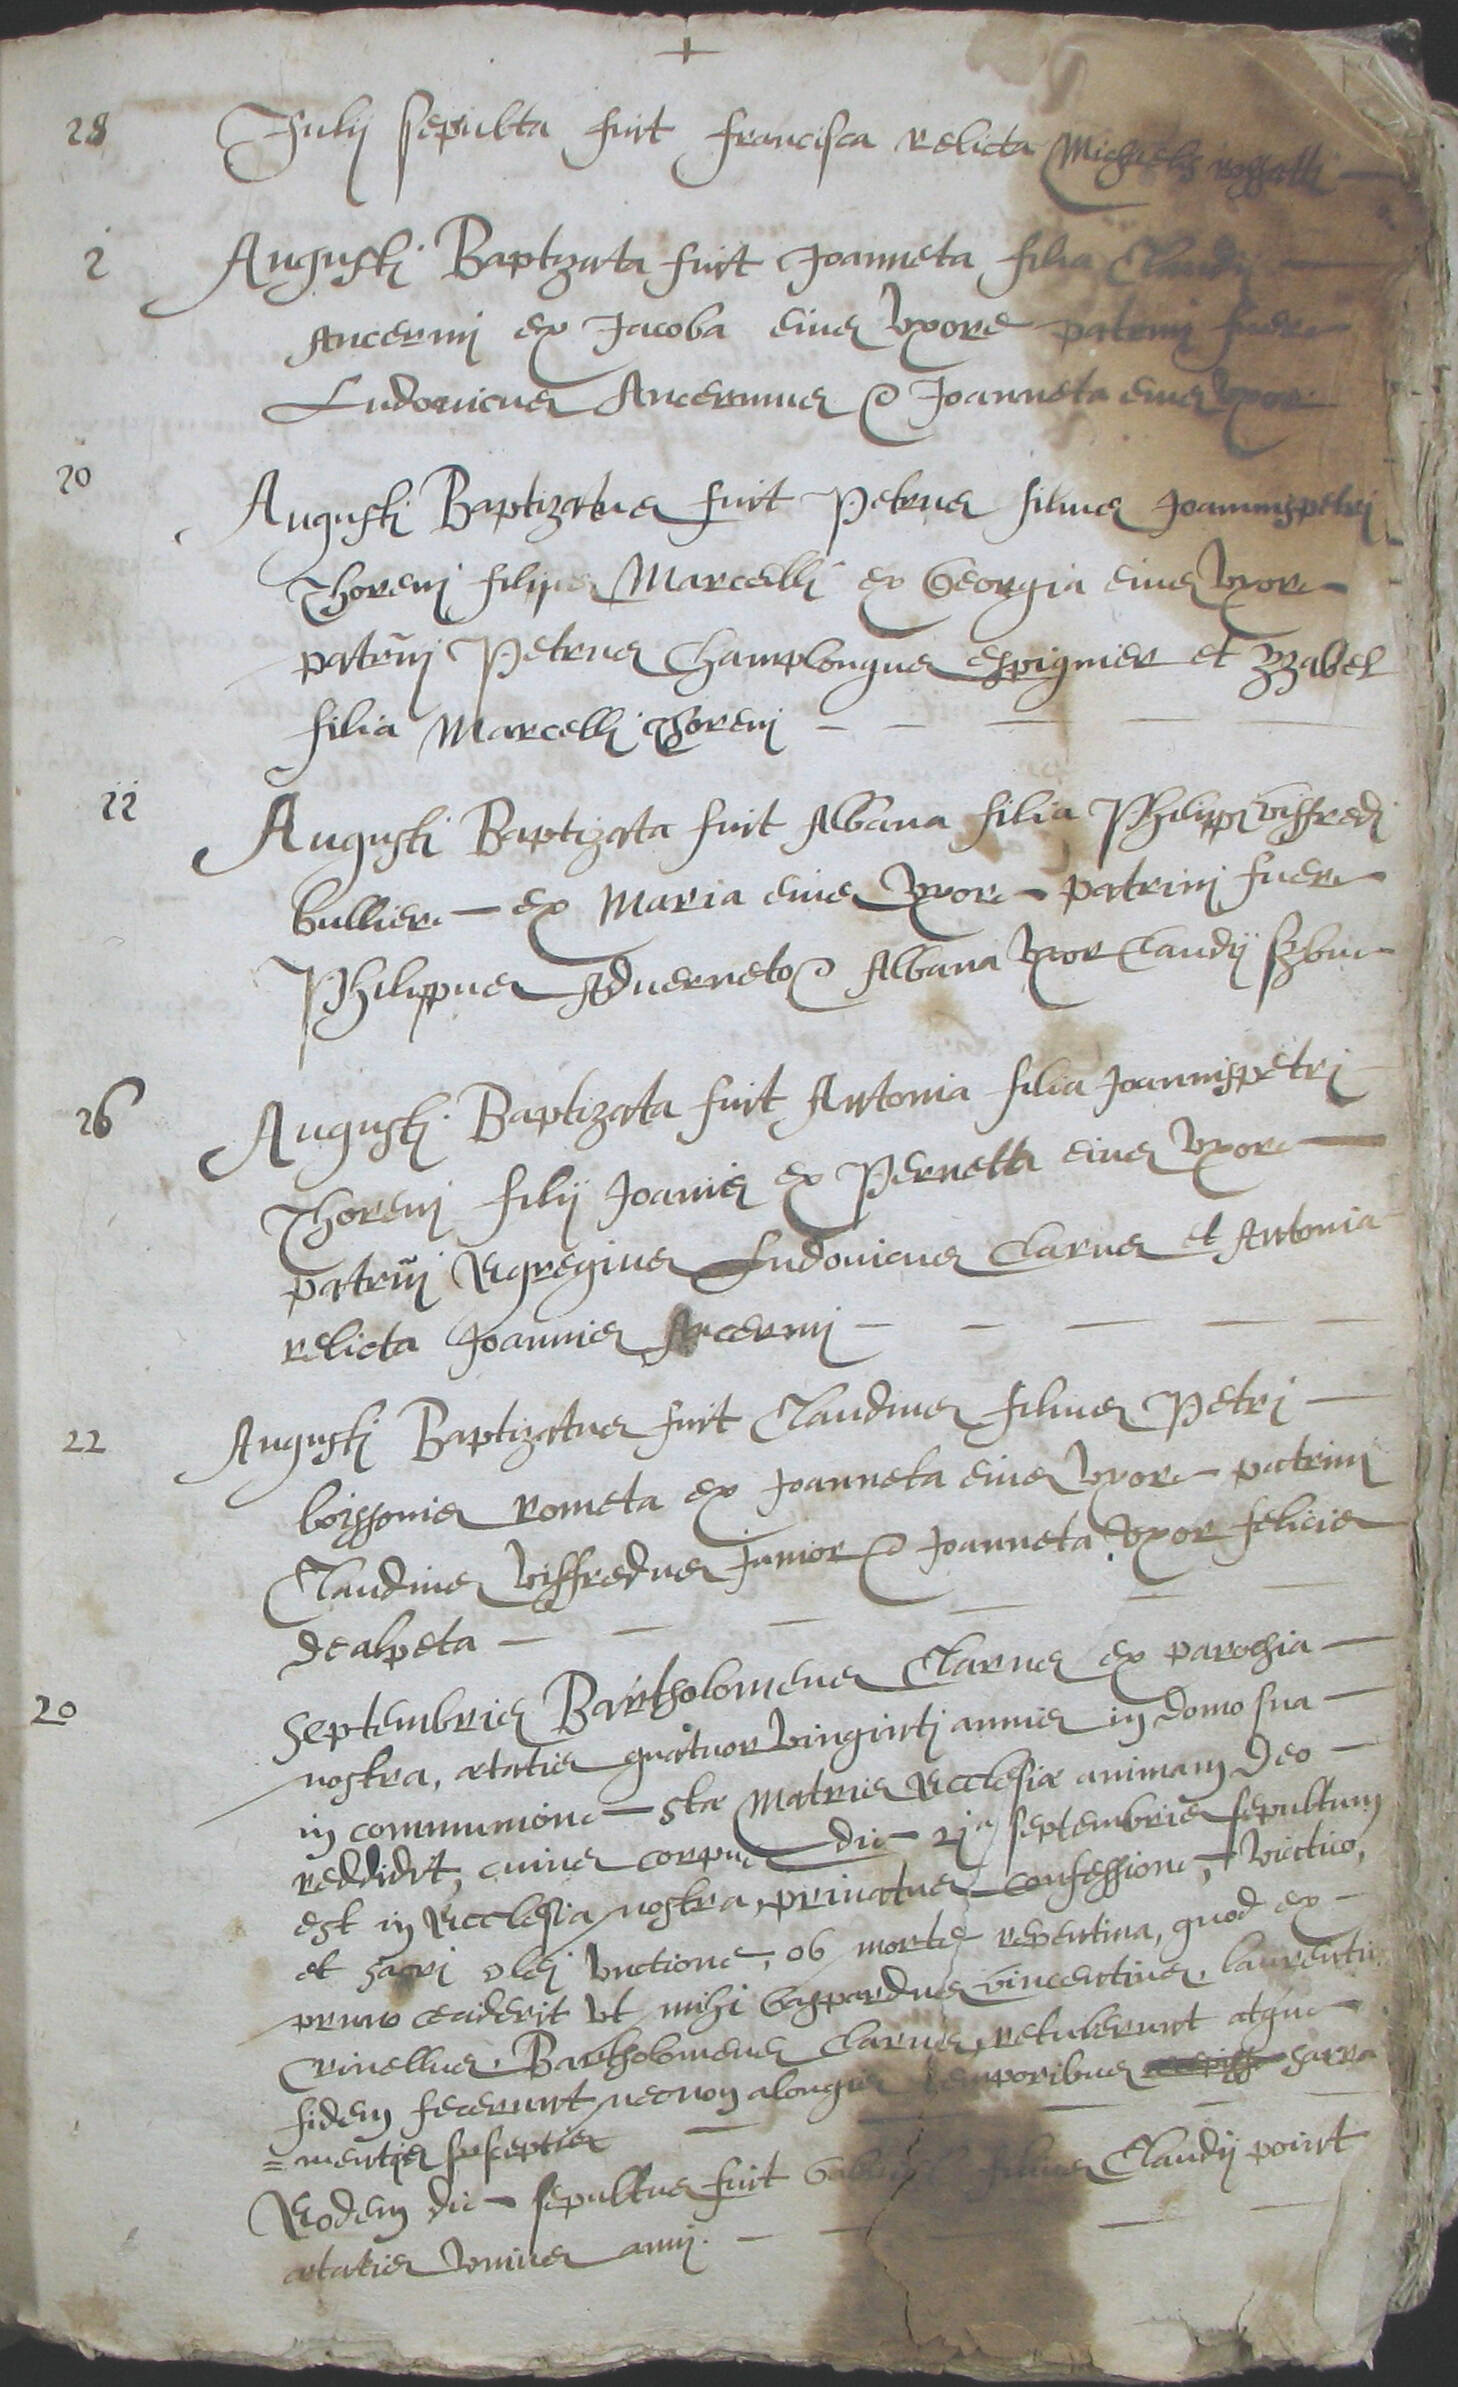 +
28 Julij sepulta fuit francisca relicta Michaelis
2 Augusti Baptizata fuit Joanneta filia Claudij
Ancermi ex Jacoba eius Vxore patrini fuere
Ludovicus Ancermus & Joanneta eius vxor
20 Augusti Baptizatus fuit Petrus filius Joannispetri
Thoreni filij Marcelli ex Georgia eius Vxore
patrĩnj Petrus Champlongus espignier et yzabel
filia Marcelli Thoreni
22 Augusti Baptizata fuit Albana filia Philippi viffredi
bulliere ex Maria eius Vxore patrini fuere
Philippus Aduerneto & Albana Vxor Claudij
26 Augusti Baptizata fuit Antonia filia Joannispetri
Thoreni filij Joannis ex Pernetta eius Vxore
patrĩnj Egregius Ludouicus Clarus et Antonia
relicta Joannis Ancermi
22 Augusti Baptizatus fuit Claudius filius Petri
boissonis rometa ex Joanneta eius Vxore patrini
Claudius Viffredus Junior & Joanneta Vxor felicis
de alpeta
20 Septembris Bartholomeus Clarus ex parochia
nostra, ætatis quatuor Vinginti annis in domo sua
in communione stæ Matris Ecclesiæ animam Deo
reddidit, cuius corpus die septembris sepultum
est in Ecclesia nostra, priuatus confessione, Viatico,
et sacri olej Vnctione, ob mortẽ repentina, quod ex
pruno ceciderit Vt mihi Gaspardus Vincentius, laurentius
Crinellus, Bartholomeus Clarus, retulerunt atque
fidem fecerunt necnon a longis temporibus sacra
=mentis susceptis
Eodem die sepultus fuit Gabriel filius Claudij point
ætatis Vnius anni.